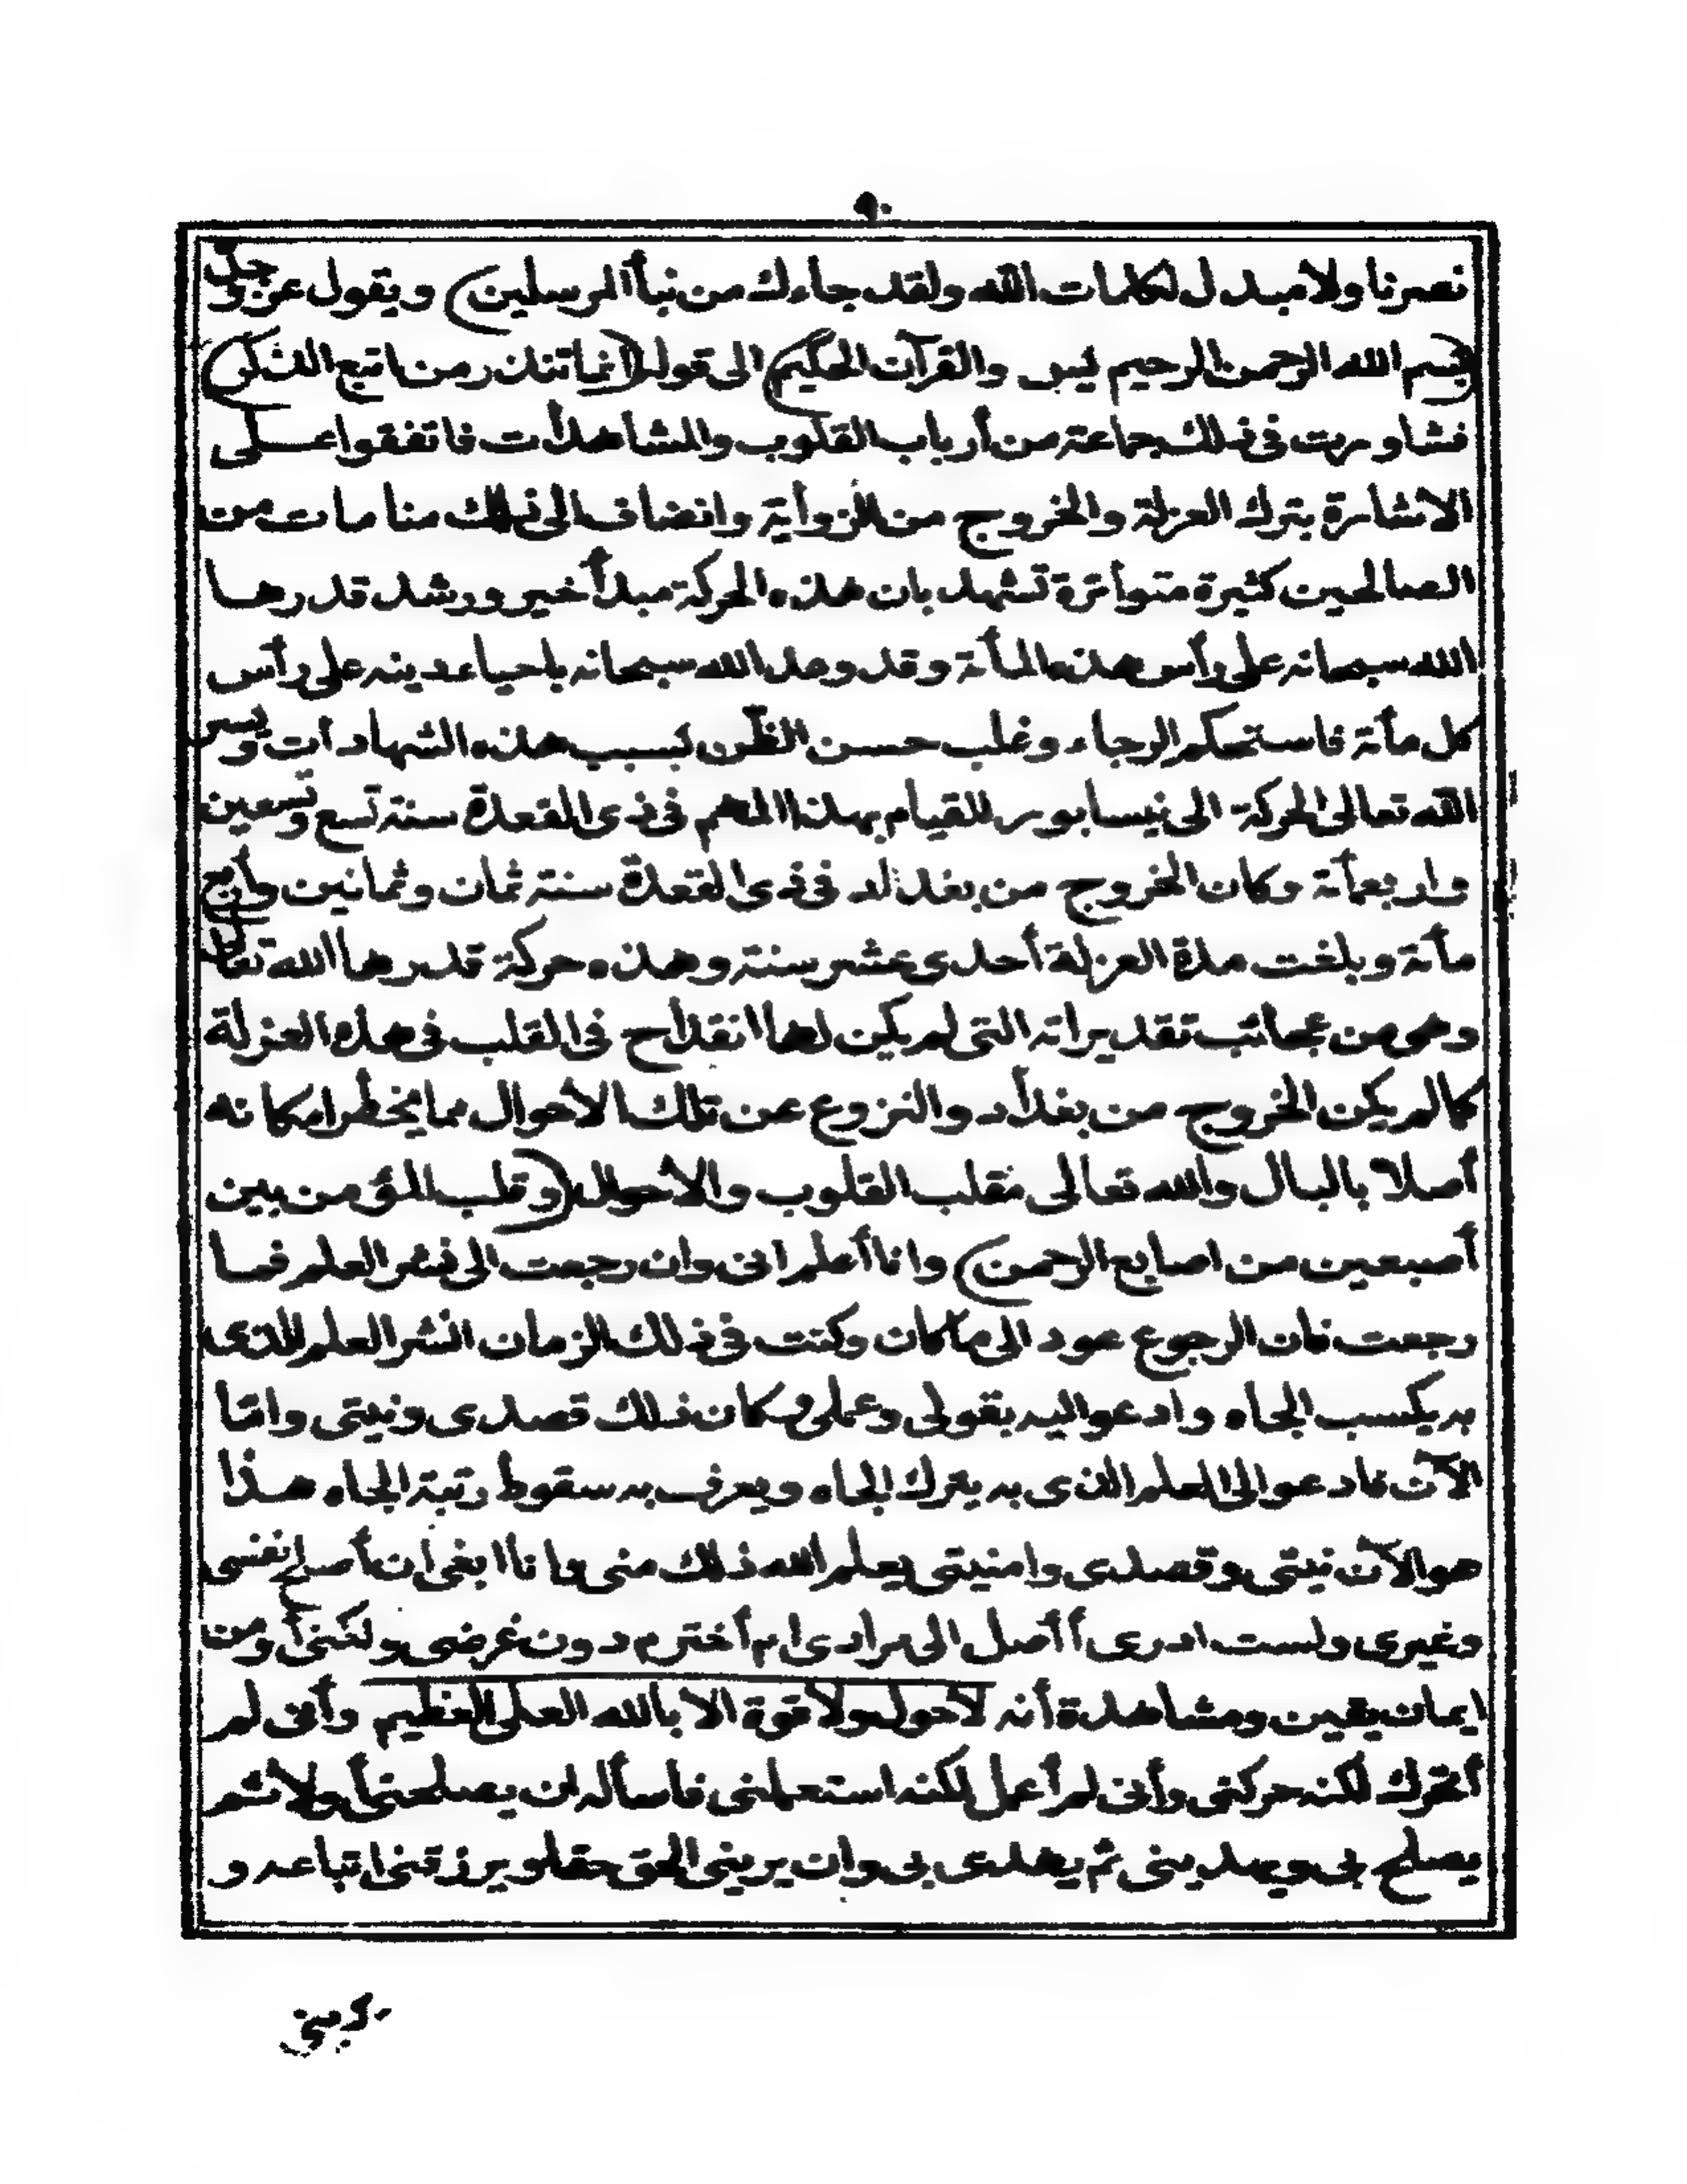 ٩٠
نصرنا ولا مبدل لكلمات الله ولقد جاءك من نبأ المرسلين) ويقول عز وجل
(بسم الله الرحمن الرحيم يس والقرآن الحكيم) الى قوله (انما تنذر من اتبع الذكر)
فشاورت في ذلك جماعة من أرباب القلوب والمشاهدأت فاتفقوا على
الاشارة بترك العزلة والخروج من الزوأية وانضاف الى ذلك منامات من
الصالحين كثيرة متوأترة تشهد بان هذه الحركة مبدأ خير ورشد قدرها
الله سبحانه على رأس هذه المأئة وقد وعد الله سبحانه باحياء دينه على رأس
كل مأئة فاستحكم الرجاء وغلب حسن الظن بسبب هذه الشهادات ويسر
الله تعالى الحركة الى نيسابور للقيام بهذا المهم في ذى القعدة سنة تسع وتسعين
واربعمأئة وكان الخروج من بغداد في ذى القعدة سنة ثمان وثمانين وأربع
مأئة وبلغت مدة العزلة أحدى عشر سنة وهذه حركة قدرها الله تعالى
وهو من عجائب تقديراته التى لم يكن لها انقداح فى القلب فى هذه العزلة
كما لم يكن الخروج من بغدأد والنزوع عن تلك الأحوال مما يخطر امكانه
أصلا بالبال والله تعالى مقلب القلوب والأحوال (وقلب المؤمن بين
أصبعين من اصابع الرحمن) وانا أعلم انى وان رجعت الى نشر العلم فما
رجعت فان الرجوع عود الى ما كان وكنت في ذلك الزمان انشر العلم الذى
به يكسب الجاه وادعو اليه بقولى وعملى وكان ذلك قصدى ونيتى واما
الآن فادعو الى العلم الذى به يترك الجاه ويعرف به سقوط رتبة الجاه هذا
هو الآن نيتى وقصدى وامنيتى يعلم الله ذلك منى وانا ابغى أن أصلح نفسى
وغيرى ولست ادرى أأصل الى مرادى ام أخترم دون غرضى ولكنى أومن
ايمان يقين ومشاهدة أنه لأحول ولا قوة الا بالله العلى العظيم وأنى لم
أتحرك لكنه حركنى وأنى لم أعمل لكنه استعملنى فاسأله ان يصلحنى أولا ثم
يصلح بى ويهدينى ثم يهدى بى وان يرينى الحق حقا ويرزقنى اتباعه و